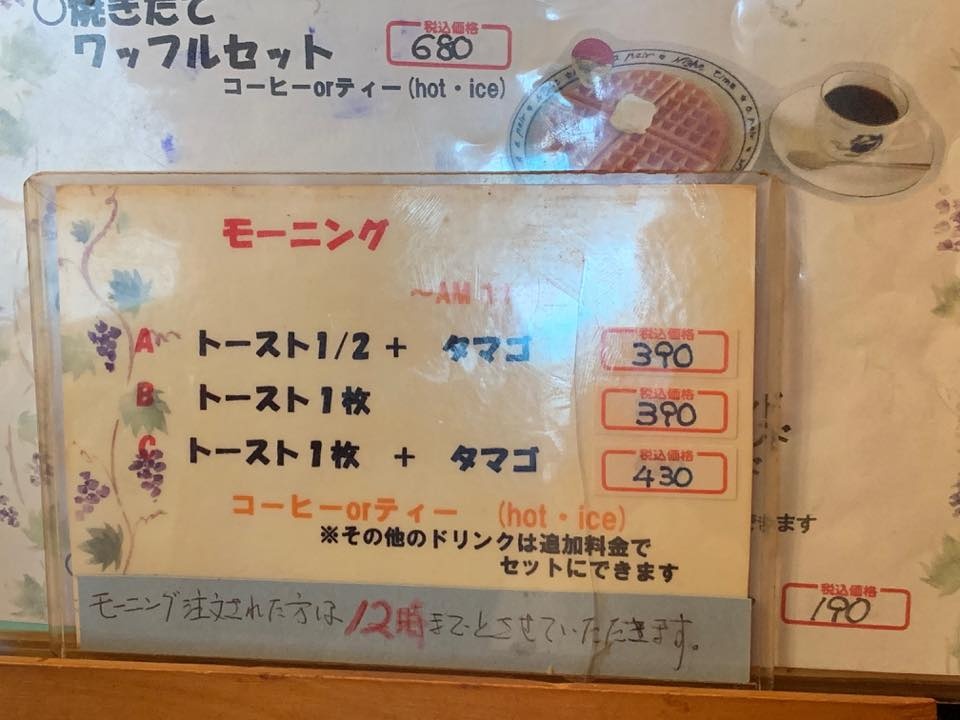 ○焼きたて
ワッフルセット 税込価格 680
コーヒーorティー(hot・ice)
モーニング
～AM 11
A トースト1/2 + タマゴ 税込価格 390
B トースト1枚 税込価格 390
C トースト1枚 + タマゴ 税込価格 430
コーヒーorティー (hot・ice)
※その他のドリンクは追加料金で
セットにできます
きます
税込価格 190
モーニング注文された方は12時までとさせていただきます。